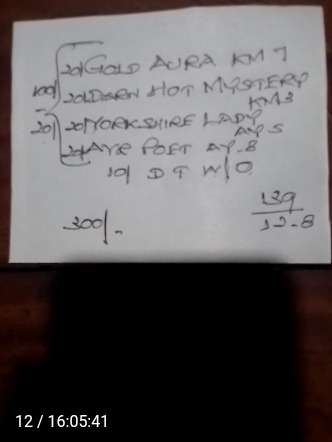 20/ GOLD AURA KM 7
100/ 20/ DARN HOT MYSTERY
KM 3
20/ 20/ YORKSHIRE LADY
AY 5
20/ AYR POET AY. 8
10/ D T W/O
139
300/-
12-8
12 / 16:05:41